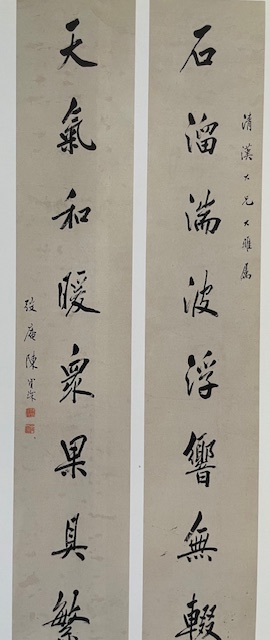 清漢大兄大雅屬
石溜湍波浮響無輟
天氣和暖衆果具繁
弢庵陳寶琛